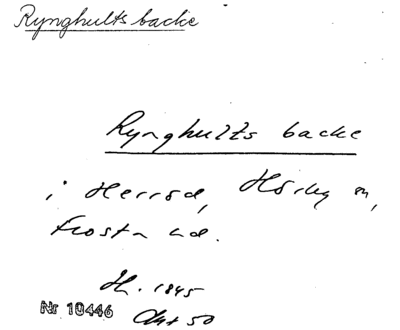 Rynghults backe
Rynghults backe
i Herrod, Hörby sn,
Frosta hd.
H. 1845
Nr 10446
Akt 50